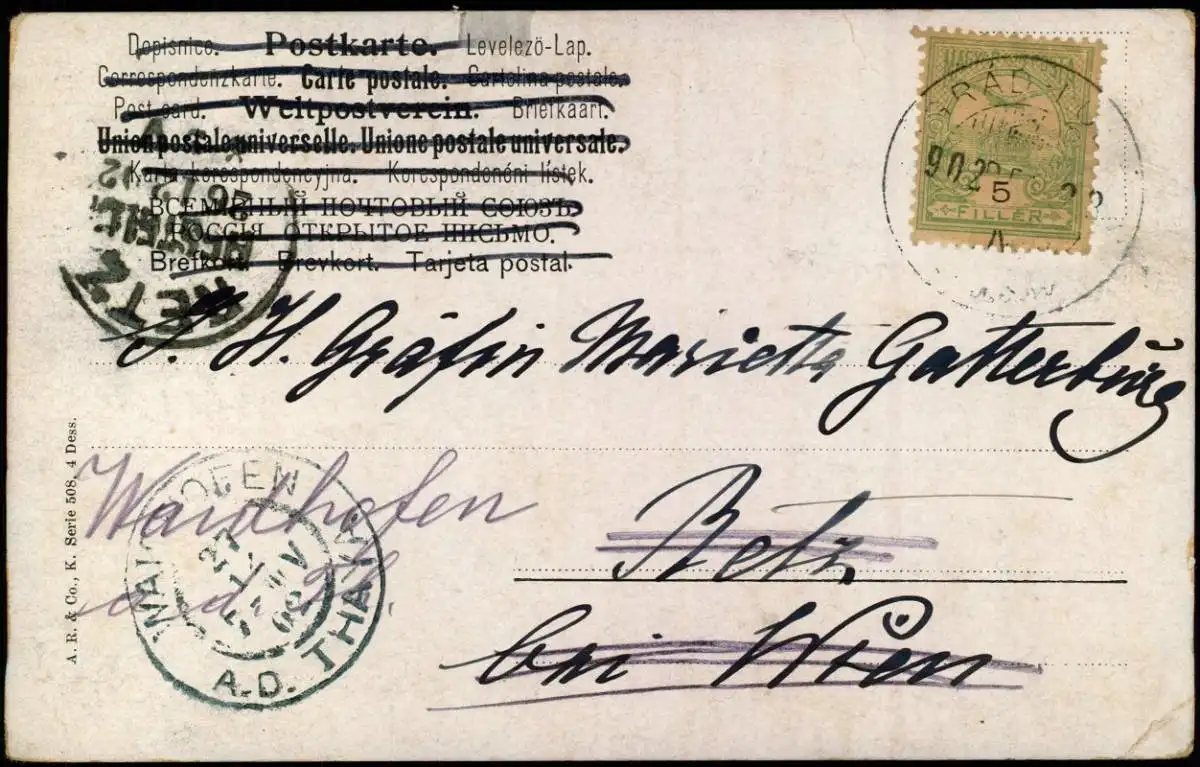 Dopisnice. Postkarte. Levelezö-Lap.
Correspondenzkarte. Carte postale. Cartolina postale.
Post card. Weltpostverein. Briefkaart.
Union postale universelle. Unione postale universale.
Karta korespondencyjna. Korespondenéni listek.
ВСЕМІРНЫЙ ПОЧТОВЫЙ СОЮЗЪ
РОССІЯ. ОТКРЫТОЕ ПИСЬМО.
Brefkort. Brevkort. Tarjeta postal.
5
FILLÉR
902
RETZ
I. H. Gräfin Marietta Gatterburg
Waidhofen
Retz
bei Wien
WAIDHOFEN
A.D. THAYA
27
A. R. & Co., K. Serie 508, 4 Dess.